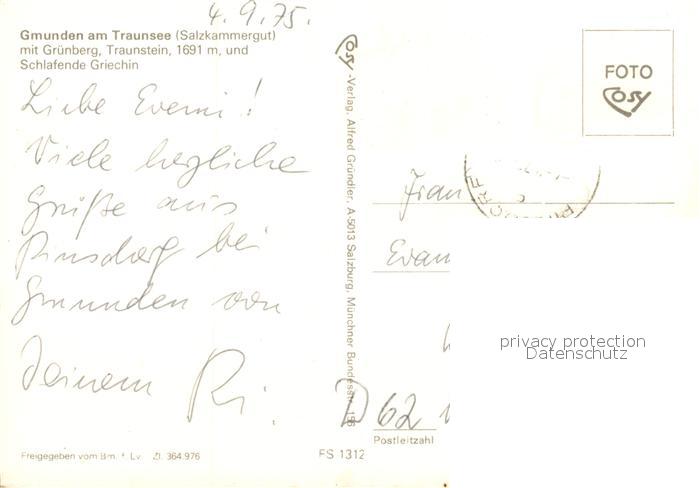 4.9.75.
Gmunden am Traunsee (Salzkammergut)
mit Grünberg, Traunstein, 1691 m, und
Schlafende Griechin
Liebe Evemi!
Viele herzliche
Grüße aus
Pinsdorf bei
Gmunden von
Deinem Ri.
Freigegeben vom Bm. f. Lv. Zl. 364.976
FS 1312
Cosy-Verlag, Alfred Gründler, A-5013 Salzburg, Münchner Bundesstr. 156
FOTO
Cosy
Frau
Evan
D 62
Postleitzahl
privacy protection
Datenschutz